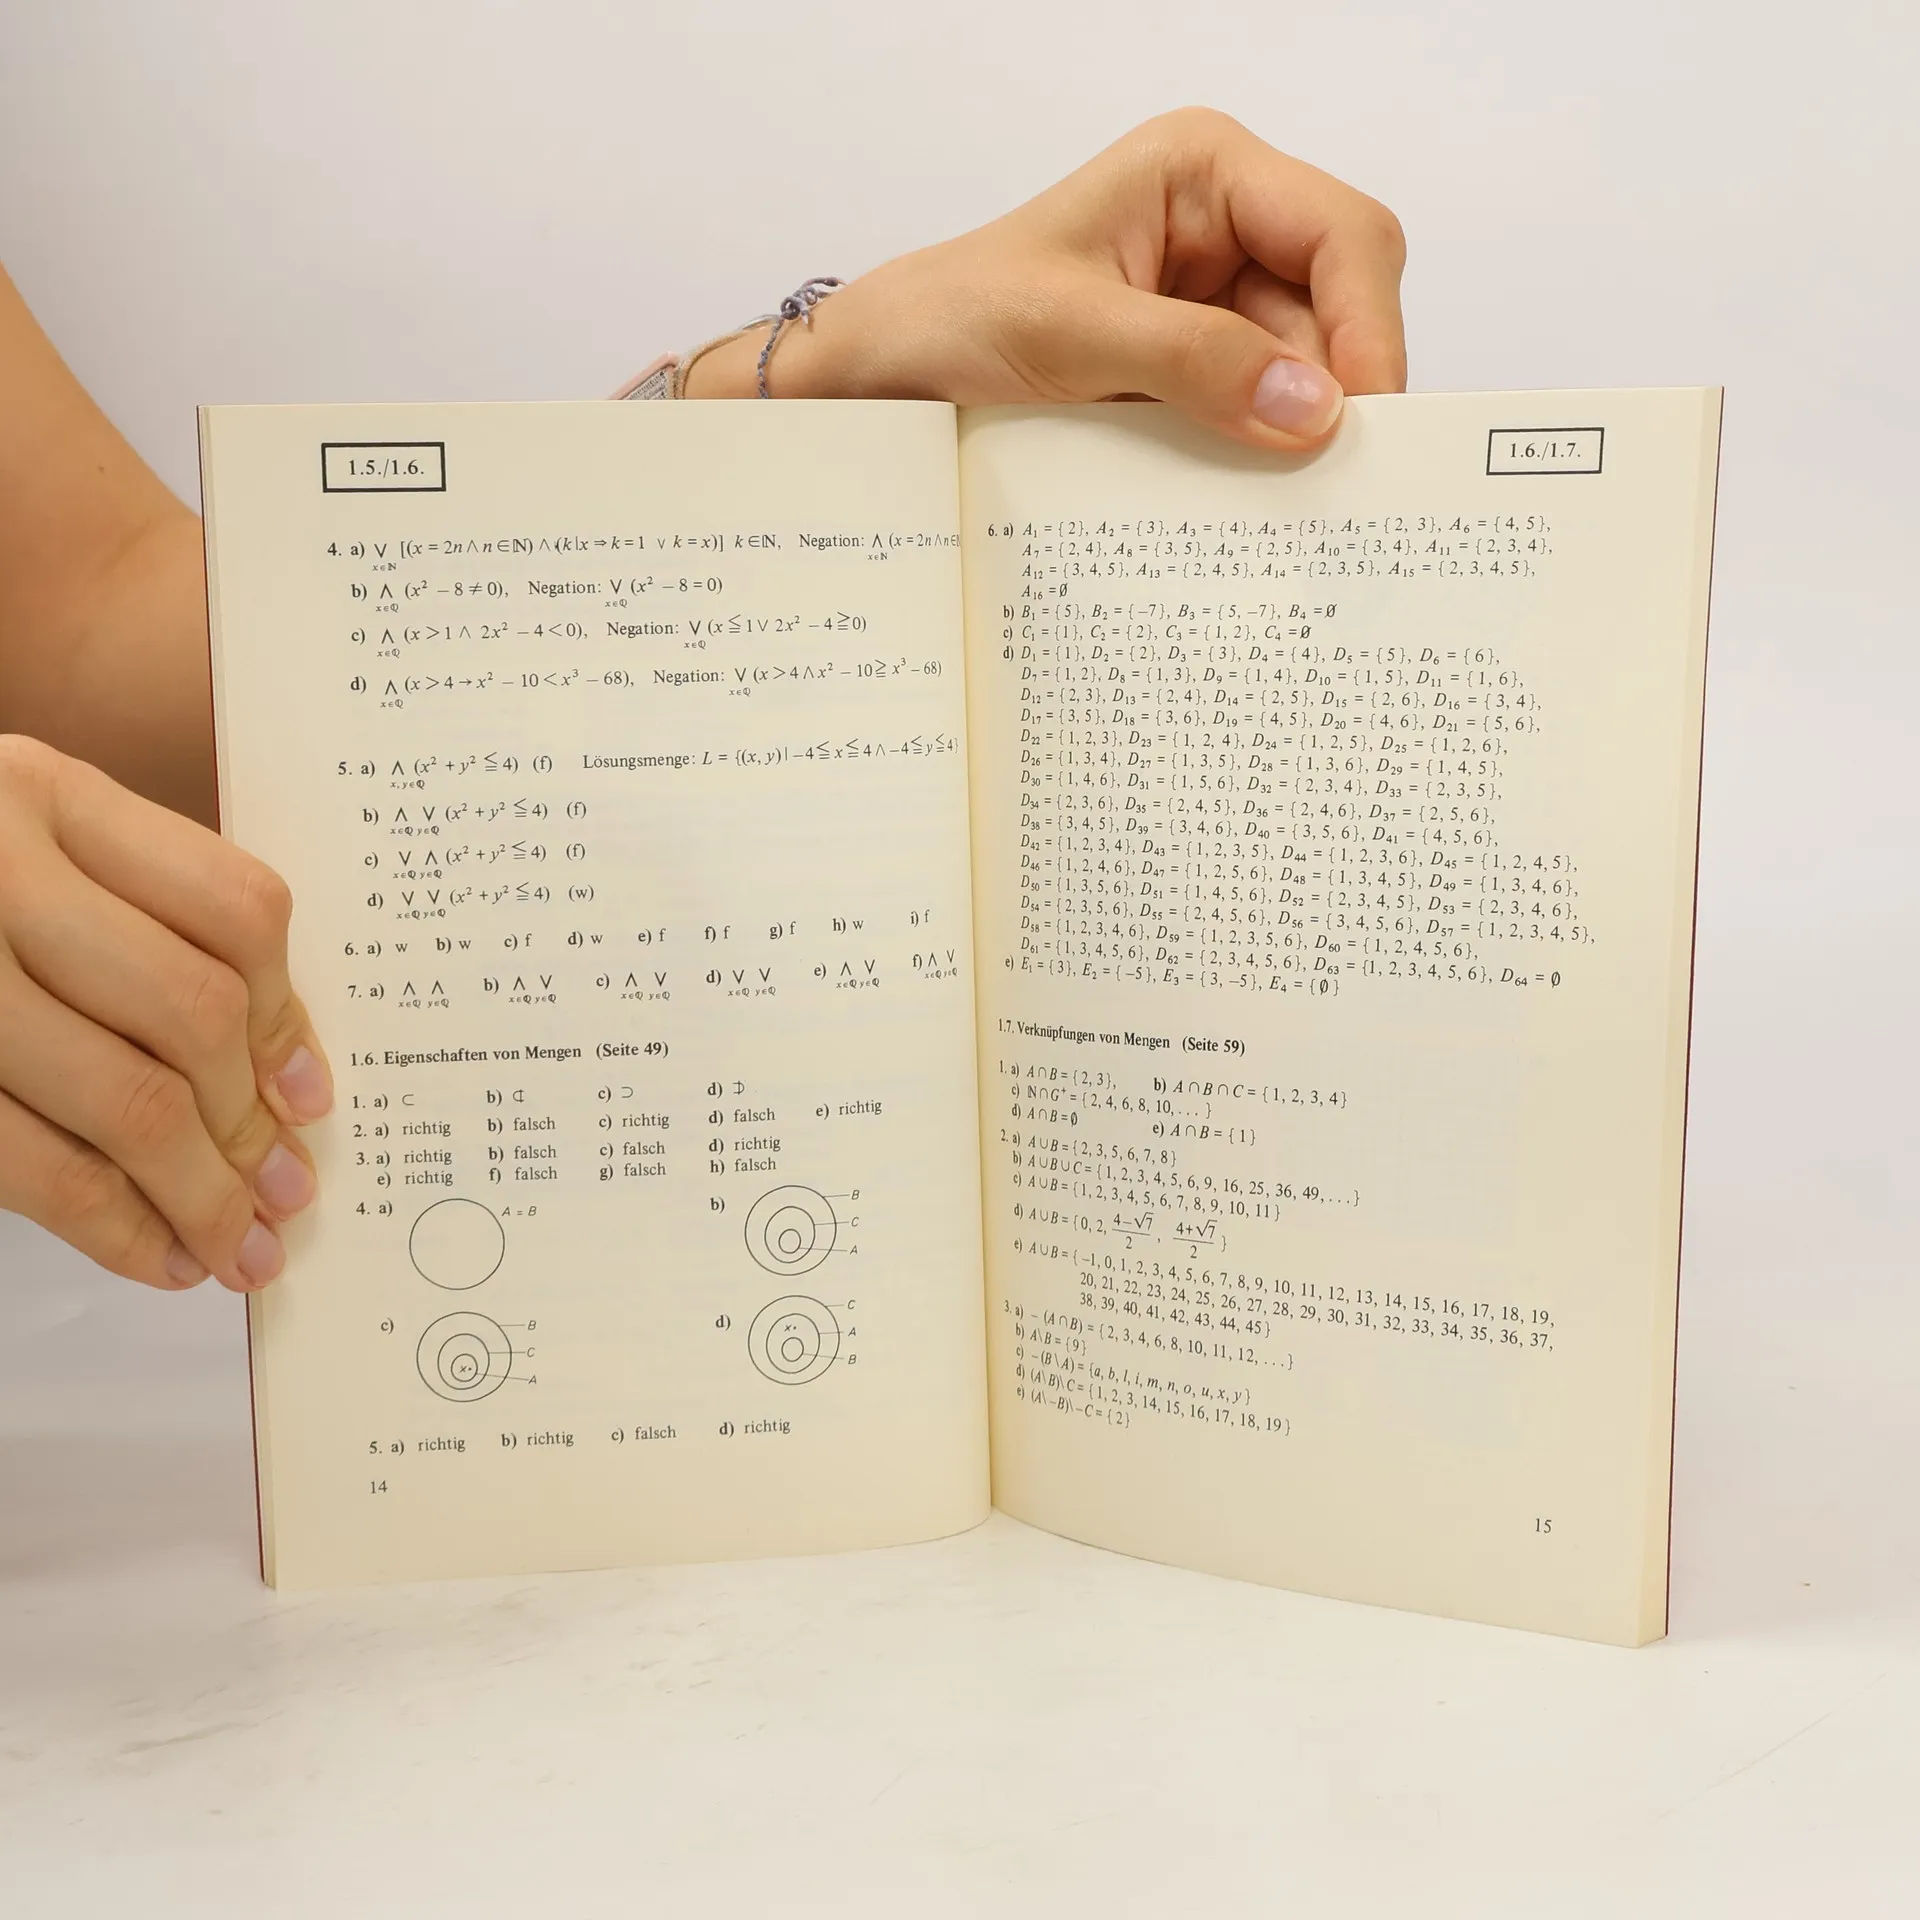 1.5./1.6.
4. a) ⋁ [(x = 2n ∧ n ∈ ℕ) ∧ (k|x ⇒ k = 1 ∨ k = x)] k ∈ ℕ, Negation: ⋀ (x = 2n ∧ n ∈
x∈ℕ x∈ℕ
b) ⋀ (x² − 8 ≠ 0), Negation: ⋁ (x² − 8 = 0)
x∈ℚ x∈ℚ
c) ⋀ (x > 1 ∧ 2x² − 4 < 0), Negation: ⋁ (x ≦ 1 ∨ 2x² − 4 ≧ 0)
x∈ℚ x∈ℚ
d) ⋀ (x > 4 → x² − 10 < x³ − 68), Negation: ⋁ (x > 4 ∧ x² − 10 ≧ x³ − 68)
x∈ℚ x∈ℚ
5. a) ⋀ (x² + y² ≦ 4) (f) Lösungsmenge: L = {(x, y)| −4 ≦ x ≦ 4 ∧ −4 ≦ y ≦ 4}
x, y∈ℚ
b) ⋀ ⋁ (x² + y² ≦ 4) (f)
x∈ℚ y∈ℚ
c) ⋁ ⋀ (x² + y² ≦ 4) (f)
x∈ℚ y∈ℚ
d) ⋁ ⋁ (x² + y² ≦ 4) (w)
x∈ℚ y∈ℚ
6. a) w b) w c) f d) w e) f f) f g) f h) w i) f
7. a) ⋀ ⋀ b) ⋀ ⋁ c) ⋀ ⋁ d) ⋁ ⋁ e) ⋀ ⋁ f) ⋀ ⋁
x∈ℚ y∈ℚ x∈ℚ y∈ℚ x∈ℚ y∈ℚ x∈ℚ y∈ℚ x∈ℚ y∈ℚ x∈ℚ y∈ℚ
1.6. Eigenschaften von Mengen (Seite 49)
1. a) ⊂ b) ⊄ c) ⊃ d) ⊅
2. a) richtig b) falsch c) richtig d) falsch e) richtig
3. a) richtig b) falsch c) falsch d) richtig
e) richtig f) falsch g) falsch h) falsch
4. a) A = B b) B
C
A
c) B
C
x
A
d) C
x
A
B
5. a) richtig b) richtig c) falsch d) richtig
14
1.6./1.7.
6. a) A₁ = {2}, A₂ = {3}, A₃ = {4}, A₄ = {5}, A₅ = {2, 3}, A₆ = {4, 5},
A₇ = {2, 4}, A₈ = {3, 5}, A₉ = {2, 5}, A₁₀ = {3, 4}, A₁₁ = {2, 3, 4},
A₁₂ = {3, 4, 5}, A₁₃ = {2, 4, 5}, A₁₄ = {2, 3, 5}, A₁₅ = {2, 3, 4, 5},
A₁₆ = ∅
b) B₁ = {5}, B₂ = {−7}, B₃ = {5, −7}, B₄ = ∅
c) C₁ = {1}, C₂ = {2}, C₃ = {1, 2}, C₄ = ∅
d) D₁ = {1}, D₂ = {2}, D₃ = {3}, D₄ = {4}, D₅ = {5}, D₆ = {6},
D₇ = {1, 2}, D₈ = {1, 3}, D₉ = {1, 4}, D₁₀ = {1, 5}, D₁₁ = {1, 6},
D₁₂ = {2, 3}, D₁₃ = {2, 4}, D₁₄ = {2, 5}, D₁₅ = {2, 6}, D₁₆ = {3, 4},
D₁₇ = {3, 5}, D₁₈ = {3, 6}, D₁₉ = {4, 5}, D₂₀ = {4, 6}, D₂₁ = {5, 6},
D₂₂ = {1, 2, 3}, D₂₃ = {1, 2, 4}, D₂₄ = {1, 2, 5}, D₂₅ = {1, 2, 6},
D₂₆ = {1, 3, 4}, D₂₇ = {1, 3, 5}, D₂₈ = {1, 3, 6}, D₂₉ = {1, 4, 5},
D₃₀ = {1, 4, 6}, D₃₁ = {1, 5, 6}, D₃₂ = {2, 3, 4}, D₃₃ = {2, 3, 5},
D₃₄ = {2, 3, 6}, D₃₅ = {2, 4, 5}, D₃₆ = {2, 4, 6}, D₃₇ = {2, 5, 6},
D₃₈ = {3, 4, 5}, D₃₉ = {3, 4, 6}, D₄₀ = {3, 5, 6}, D₄₁ = {4, 5, 6},
D₄₂ = {1, 2, 3, 4}, D₄₃ = {1, 2, 3, 5}, D₄₄ = {1, 2, 3, 6}, D₄₅ = {1, 2, 4, 5},
D₄₆ = {1, 2, 4, 6}, D₄₇ = {1, 2, 5, 6}, D₄₈ = {1, 3, 4, 5}, D₄₉ = {1, 3, 4, 6},
D₅₀ = {1, 3, 5, 6}, D₅₁ = {1, 4, 5, 6}, D₅₂ = {2, 3, 4, 5}, D₅₃ = {2, 3, 4, 6},
D₅₄ = {2, 3, 5, 6}, D₅₅ = {2, 4, 5, 6}, D₅₆ = {3, 4, 5, 6}, D₅₇ = {1, 2, 3, 4, 5},
D₅₈ = {1, 2, 3, 4, 6}, D₅₉ = {1, 2, 3, 5, 6}, D₆₀ = {1, 2, 4, 5, 6},
D₆₁ = {1, 3, 4, 5, 6}, D₆₂ = {2, 3, 4, 5, 6}, D₆₃ = {1, 2, 3, 4, 5, 6}, D₆₄ = ∅
e) E₁ = {3}, E₂ = {−5}, E₃ = {3, −5}, E₄ = {∅}
1.7. Verknüpfungen von Mengen (Seite 59)
1. a) A∩B = {2, 3}, b) A∩B∩C = {1, 2, 3, 4}
c) ℕ∩G⁺ = {2, 4, 6, 8, 10, ...}
d) A∩B = ∅ e) A∩B = {1}
2. a) A∪B = {2, 3, 5, 6, 7, 8}
b) A∪B∪C = {1, 2, 3, 4, 5, 6, 9, 16, 25, 36, 49, ...}
c) A∪B = {1, 2, 3, 4, 5, 6, 7, 8, 9, 10, 11}
d) A∪B = {0, 2, (4−√7)/2, (4+√7)/2}
e) A∪B = {−1, 0, 1, 2, 3, 4, 5, 6, 7, 8, 9, 10, 11, 12, 13, 14, 15, 16, 17, 18, 19,
20, 21, 22, 23, 24, 25, 26, 27, 28, 29, 30, 31, 32, 33, 34, 35, 36, 37,
38, 39, 40, 41, 42, 43, 44, 45}
3. a) −(A∩B) = {2, 3, 4, 6, 8, 10, 11, 12, ...}
b) A\B = {9}
c) −(B\A) = {a, b, l, i, m, n, o, u, x, y}
d) (A\B)\C = {1, 2, 3, 14, 15, 16, 17, 18, 19}
e) (A\−B)\−C = {2}
15